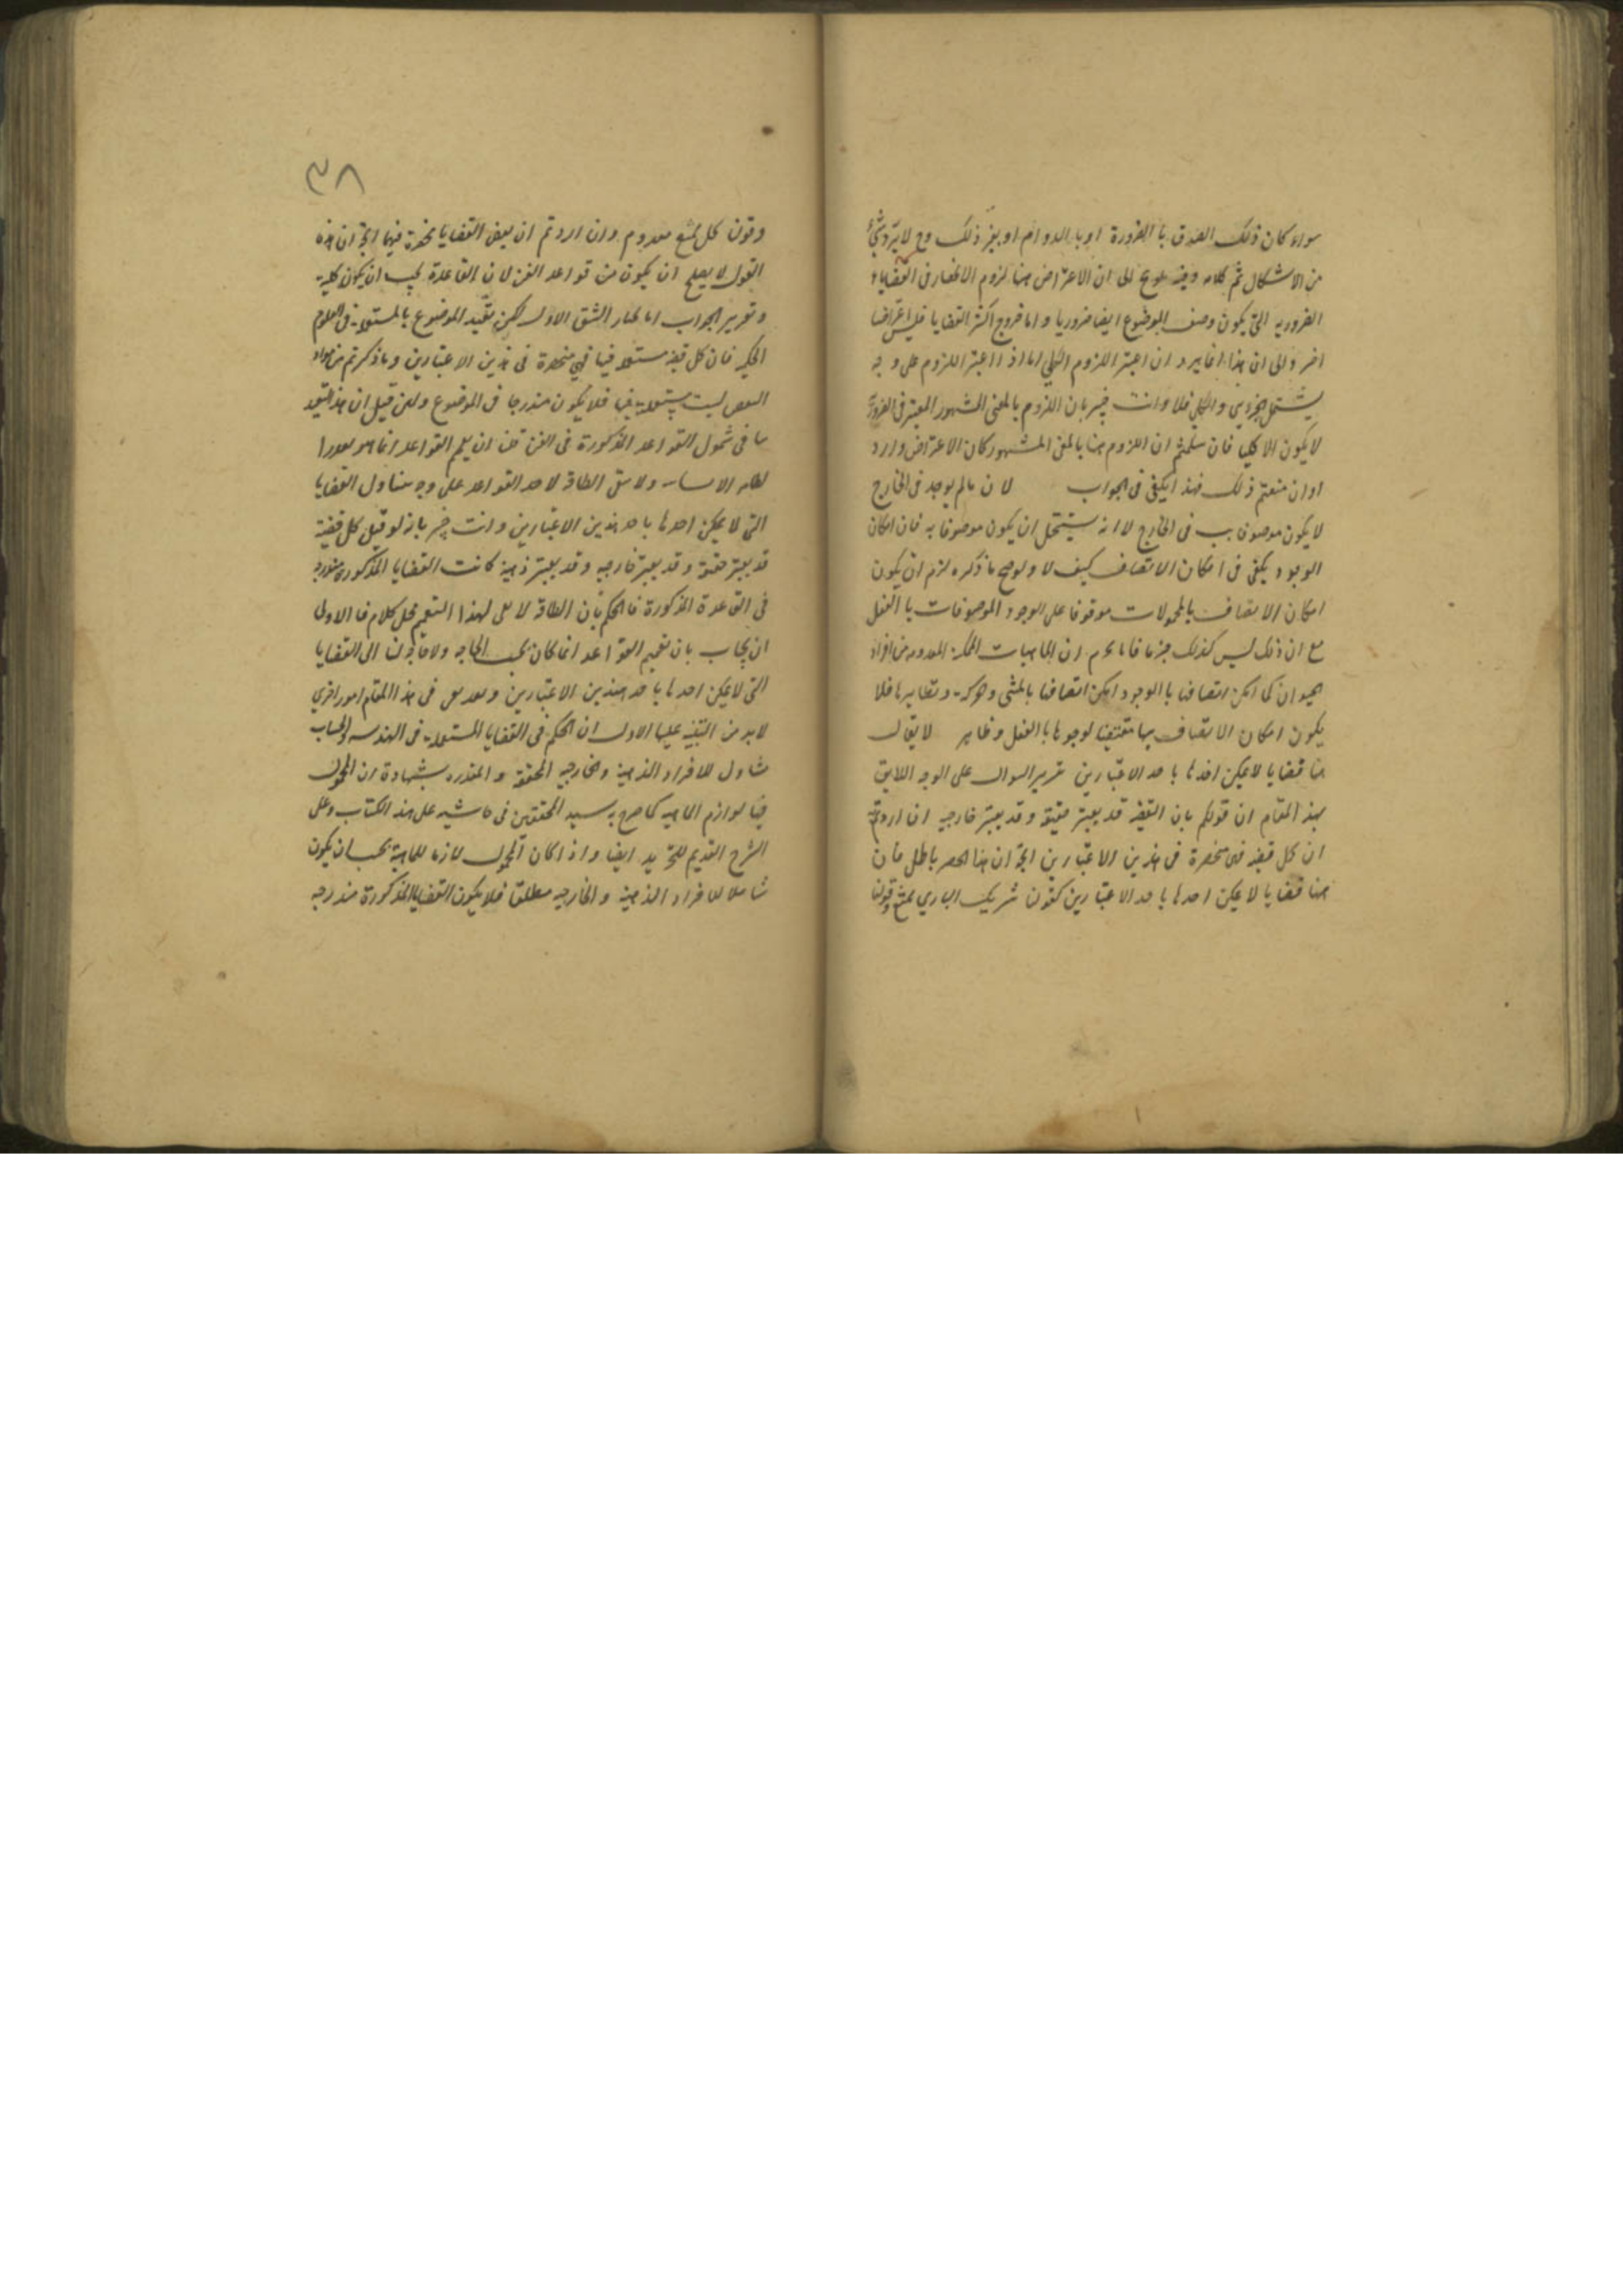 سواء كان ذلك الصدق بالضرورة او بالدوام او بغير ذلك وح لا يرد شئ
من الاشكال تم كلامه وفيه الى ان الاعتراض هنا لزوم الانحصار فى القضايا
الضروريه التى يكون وصف الموضوع ايضا ضروريا واما خروج اكثر القضايا فليس اعتراضا
اخر والى ان هذا انما يرد ان اعتبر اللزوم الكلى اما اذا اعتبر اللزوم على وجه
يشتمل الجزئى والكلى فلا وانت خبير بان اللزوم بالمعنى المشهور المعتبر فى
لا يكون الا كليا فان سلمتم ان اللزوم هنا بالمعنى المشهور كان الاعتراض وارد
او ان منعتم ذلك فهذا يكفى فى الجواب لان ما لم يوجد فى الخارج
لا يكون موصوفا ب فى الخارج لا انه يستحيل ان يكون موصوفا به فان امكان
الوجود يكفى فى امكان الاتصاف كيف لا ولو صح ما ذكره لزم ان يكون
امكان الاتصاف بالمحمولات موقوفا على الوجود الموصوفات بالفعل
مع ان ذلك ليس كذلك جزما فانا ان الماهيات الممكنة المعدومه من افراد
الحيوان كما امكن اتصافها بالوجود امكن اتصافها بالمشى والحركة ونظايرها فلا
يكون امكان الاتصاف بها مقتضيا لوجودها بالفعل وظاهر لا يقال
هنا قضايا لا يمكن اخذها باحد الاعتبارين تقرير السوال على الوجه اللايق
بهذا المقام ان قولكم بان القضيه قد يعتبر حقيقة وقد يعتبر خارجيه ان اردتم به
ان كل قضيه فهى منحصرة فى هذين الاعتبارين اتجه ان هذا الحصر باطل فان
هنا قضايا لا يمكن اخذها باحد الاعتبارين كقولنا شريك البارى ممتنع وقولنا
٣٨
وقولنا كل ممتنع معدوم وان اردتم ان بعض القضايا منحصرة فيهما اتجه ان هذه
القول لا يصلح ان يكون من قواعد الفن لان القاعدة يجب ان يكون كلية
وتقرير الجواب انا نختار الشق الاول لكن نقيد الموضوع بالمستعملة فى العلوم
الحكميه فان كل قضيه مستعمله فيها فهى منحصرة فى هذين الاعتبارين وما ذكرتم من مواد
النقض ليست بمستعملة فيها فلا يكون مندرجا فى الموضوع ولئن قيل ان هذا التقييد
ينافى شمول القواعد المذكورة فى الفن قلنا ان تعميم القواعد انما هو بقدر
الطاقه الانسانيه ولا تفى الطاقة لاخذ القواعد على وجه يتناول القضايا
التى لا يمكن اخذها باحد هذين الاعتبارين وانت خبير بانه لو قيل كل قضية
قد يعتبر حقيقة وقد يعتبر خارجيه وقد يعتبر ذهنية كانت القضايا المذكورة مندرجه
فى القاعدة المذكورة فالحكم بان الطاقة لا تفى لهذا التعميم محل كلام فالاولى
ان يجاب بان تعميم القواعد انما كان بحسب الحاجه ولا حاجة لنا الى القضايا
التى لا يمكن اخذها باحد هذين الاعتبارين وبقى فى هذا المقام امور اخرى
لا بد من التنبيه عليها الاول ان الحكم فى القضايا المستعملة فى الهندسه والحساب
شامل للافراد الذهنية والخارجيه المحققة والمقدره بشهادة ان المحمول
فيها لوازم الماهيه كما صرح به سيد المحققين فى حاشيه على هذا الكتاب وعلى
الشرح القديم للتجريد ايضا واذا كان المحمول لازما للماهية يجب ان يكون
شاملا للافراد الذهنية والخارجيه مطلقا فلا يكون القضايا المذكورة مندرجه